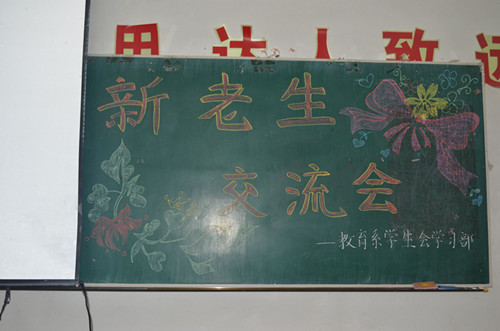 思达人致远
新老生
交流会
—教育系学生会学习部